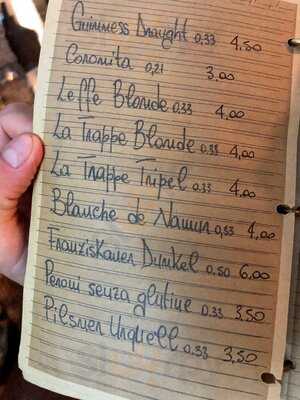 Guinness Draught 0,33 4,50
Coronita 0,21 3,00
Leffe Blonde 0.33 4,00
La Trappe Blonde 0.33 4,00
La Trappe Tripel 0.33 4,00
Blanche de Namur 0,33 4,00
Franziskaner Dunkel 0.50 6,00
Peroni senza glutine 0.33 3,50
Pilsner Urquell 0.33 3,50